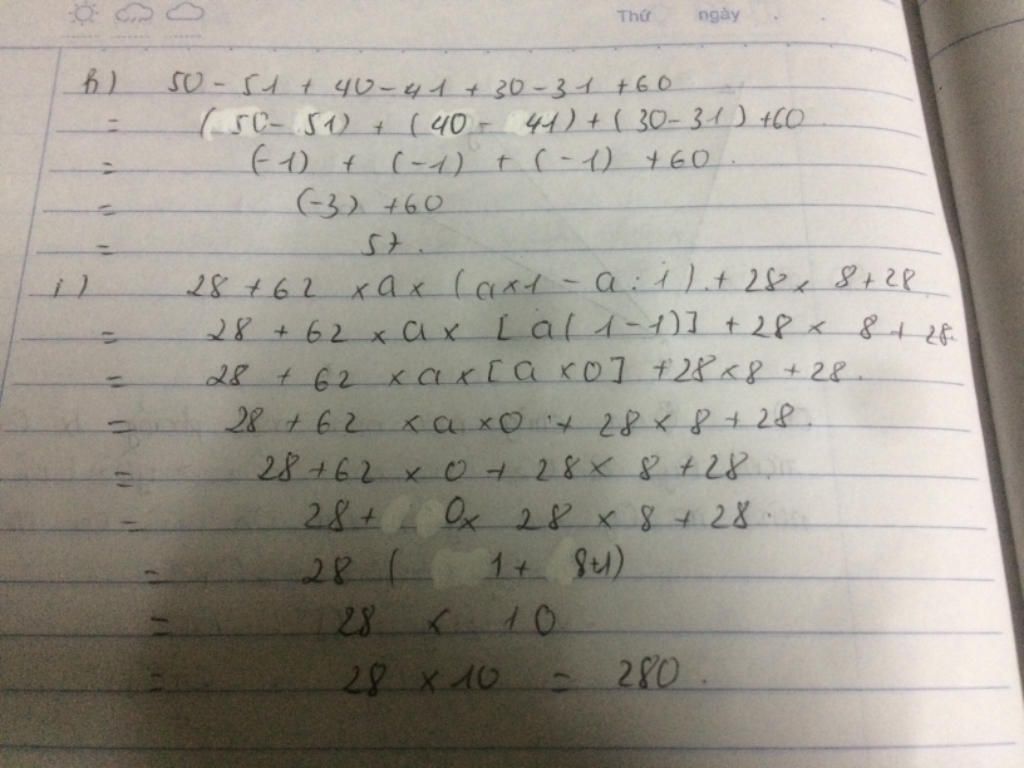 Thứ ngày . .
h) 50 - 51 + 40 - 41 + 30 - 31 + 60
= (50 - 51) + (40 - 41) + (30 - 31) + 60
= (-1) + (-1) + (-1) + 60.
= (-3) + 60
= 57.
i) 28 + 62 × a × (a×1 - a : 1) + 28 × 8 + 28
= 28 + 62 × a × [a(1-1)] + 28 × 8 + 28.
= 28 + 62 × a × [a × 0] + 28 × 8 + 28.
= 28 + 62 × a × 0 + 28 × 8 + 28.
= 28 + 62 × 0 + 28 × 8 + 28
= 28 + 0 × 28 × 8 + 28.
= 28 ( 1 + 8+1)
= 28 × 10
= 28 × 10 = 280.